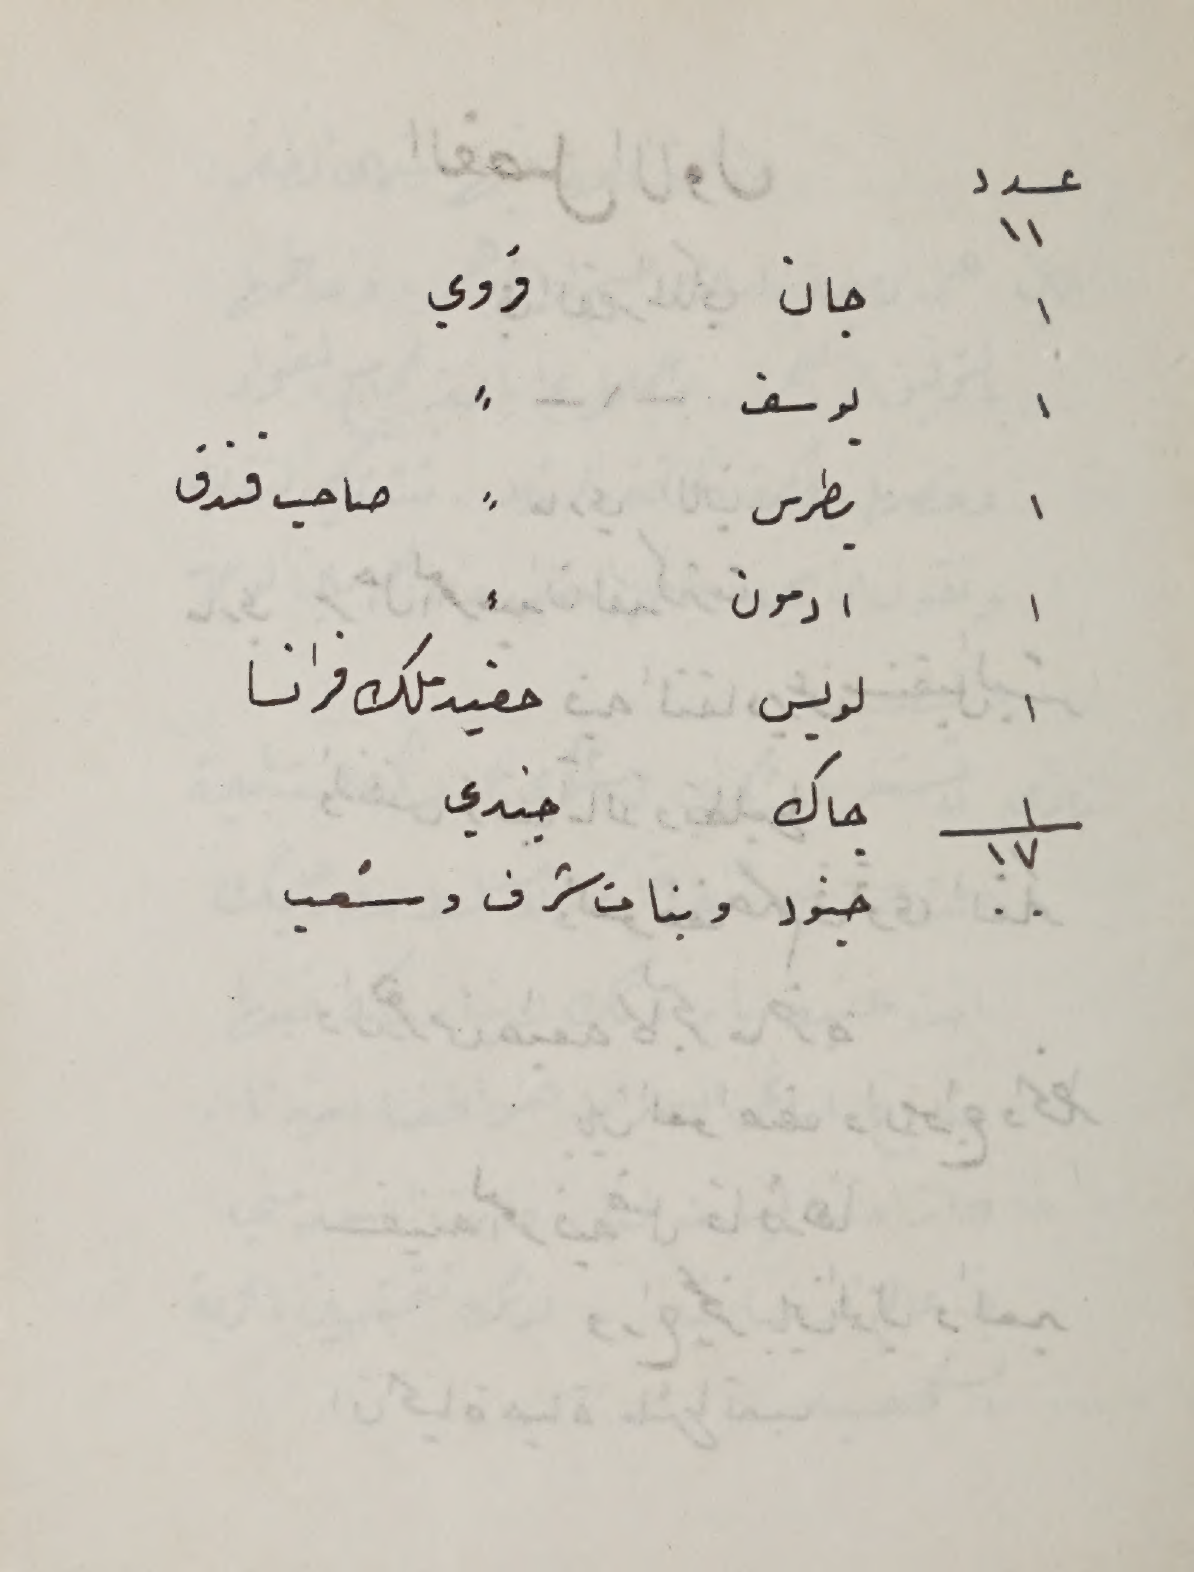 عدد
١١
١ جان قروي
١ يوسف "
١ بطرس " صاحب فندق
١ ادمون "
١ لويس حفيد ملك فرانسا
١ جاك جندي
١٧
.. جنود وبنات شرف وشعب